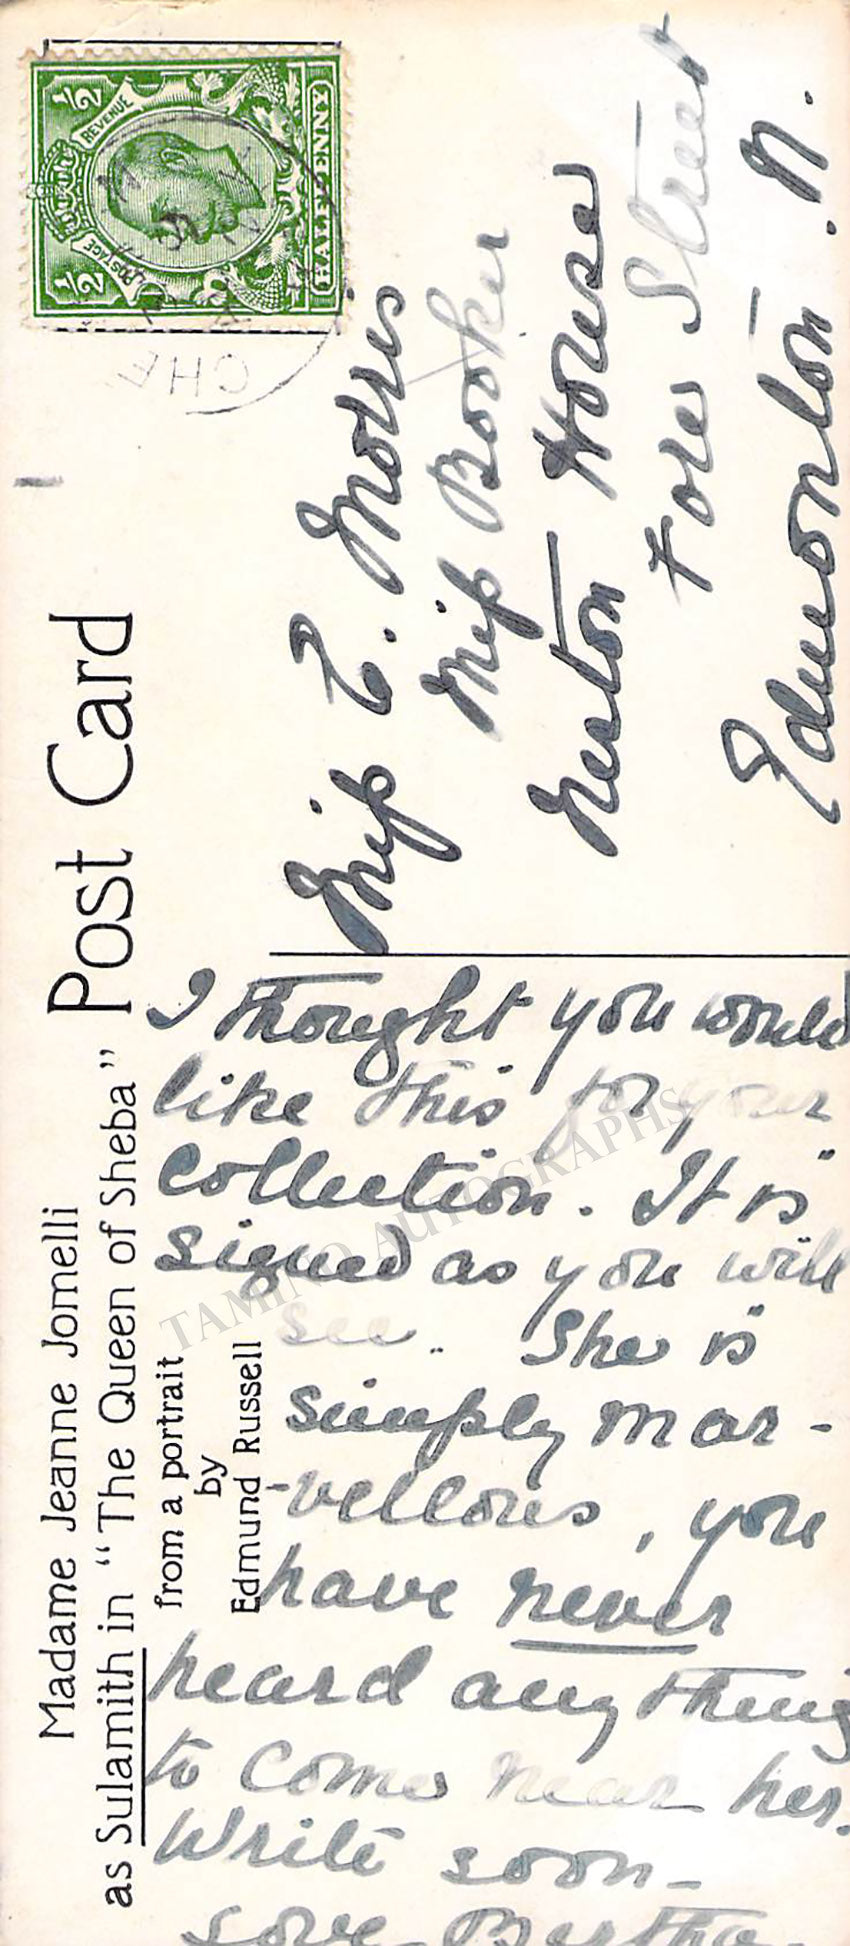 Madame Jeanne Jomelli
as Sulamith in "The Queen of Sheba"
from a portrait
by
Edmund Russell
Post Card
½ REVENUE ½ POSTAGE
HALF PENNY
CHE
Miss E. Morris
Miss Booker
House
Fore Street
Edmonton. N.
I thought you would
like this for your
collection. It is
signed as you will
see. She is
simply mar-
-vellous, you
have never
heard anything
to come near her.
Write soon-
love Bertha.
TAMINO AUTOGRAPHS